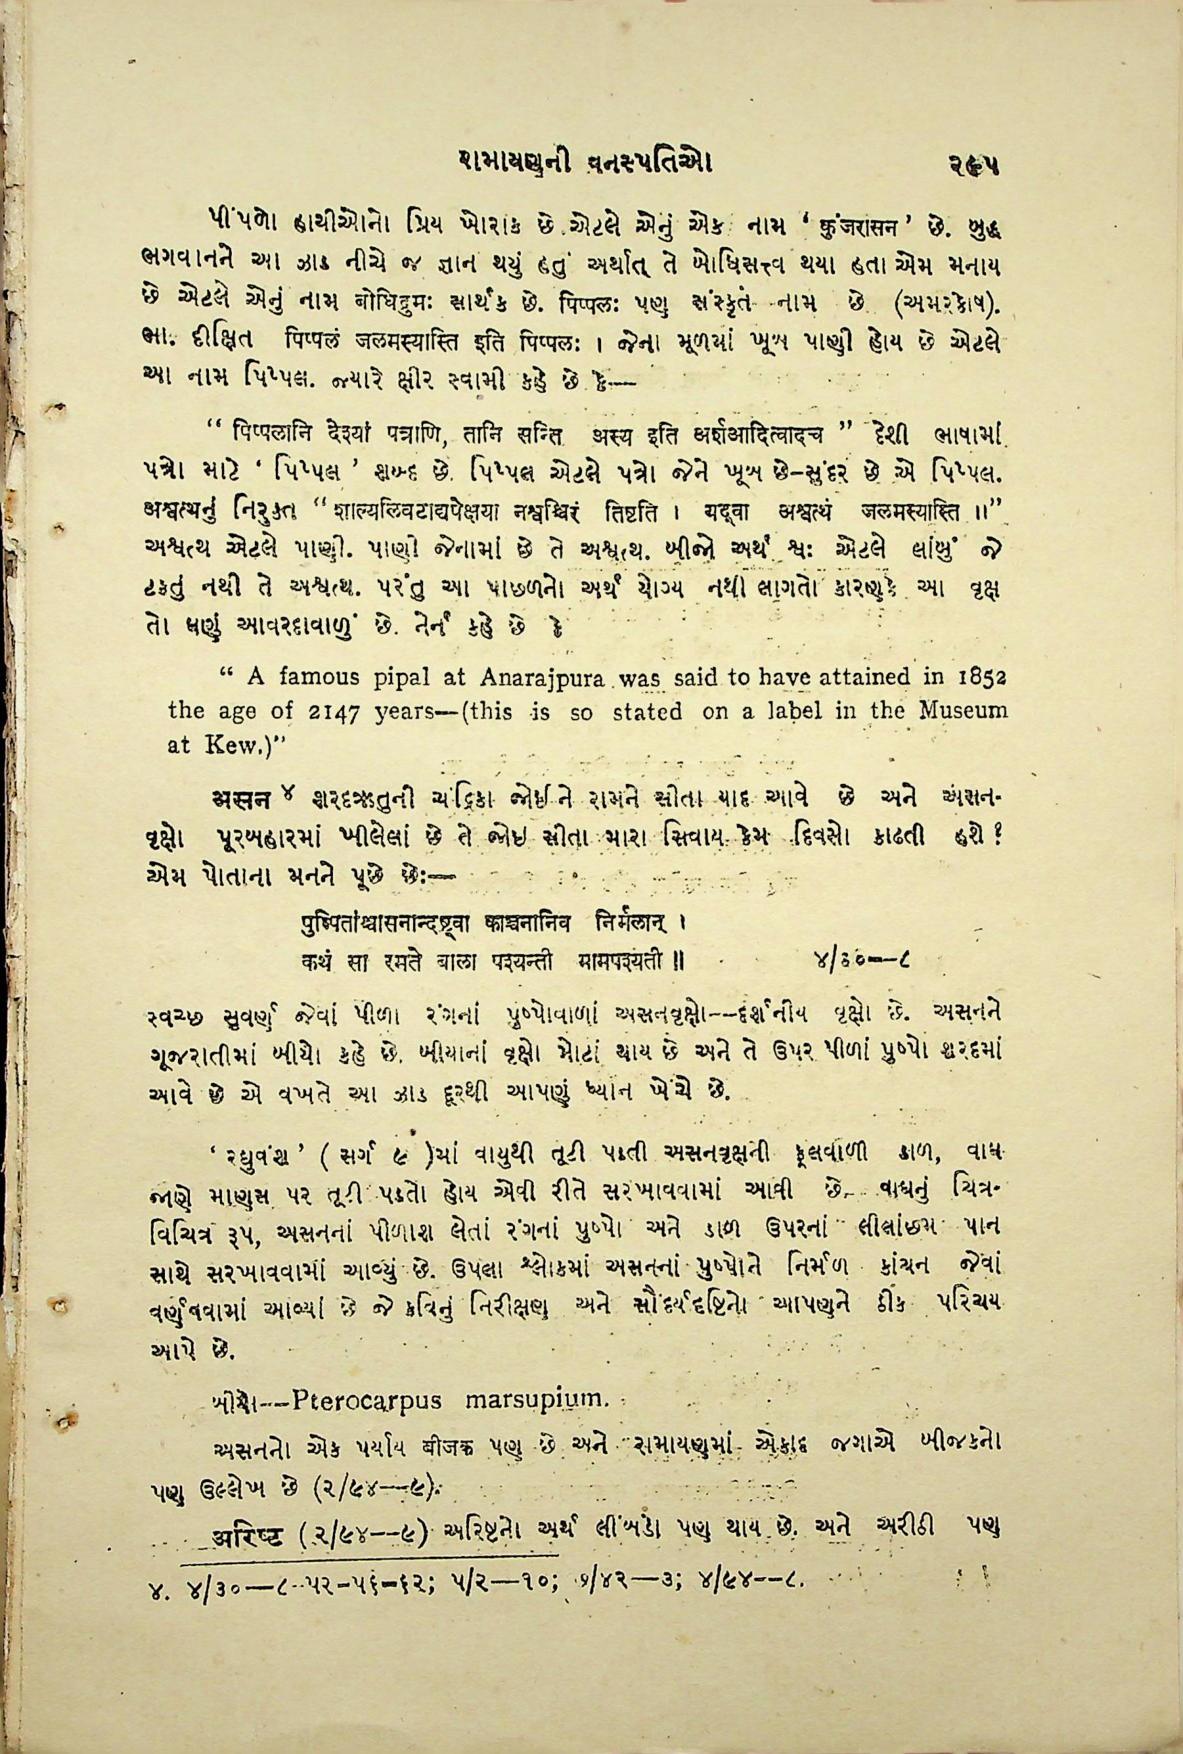 રામાયણની વનસ્પતિઓ ૨૯૫
પીંપળો હાથીઓનો પ્રિય ખોરાક છે એટલે એનું એક નામ ‘ कुंजरासन ’ છે. બુદ્ધ
ભગવાનને આ ઝાડ નીચે જ જ્ઞાન થયું હતું અર્થાત્ તે બોધિસત્ત્વ થયા હતા એમ મનાય
છે એટલે એનું નામ बोधिद्रुमः સાર્થક છે. पिप्पलः પણ સંસ્કૃત નામ છે (અમરકોષ).
ભા. દીક્ષિત पिप्पलं जलमस्यास्ति इति पिप्पलः । જેના મૂળમાં ખૂબ પાણી હોય છે એટલે
આ નામ પિપ્પલ. જ્યારે ક્ષીર સ્વામી કહે છે કે—
“ पिप्पलानि देश्यां पत्राणि, तानि सन्ति अस्य इति अर्शआदित्वादच ” દેશી ભાષામાં
પત્રો માટે ‘ પિપ્પલ ’ શબ્દ છે. પિપ્પલ એટલે પત્રો જેને ખૂબ છે–સુંદર છે એ પિપ્પલ.
અશ્વત્થનું નિરુક્ત “ शाल्यलिवटाद्यपेक्षया नश्वश्चिरं तिष्टति । यद्वा अश्वत्थं जलमस्यास्ति ॥”
અશ્વત્થ એટલે પાણી. પાણી જેનામાં છે તે અશ્વત્થ. બીજો અર્થ श्वः એટલે લાંબું જે
ટકતું નથી તે અશ્વત્થ. પરંતુ આ પાછળનો અર્થ યોગ્ય નથી લાગતો કારણકે આ વૃક્ષ
તો ઘણું આવરદાવાળું છે. નેર્ન કહે છે કે
“ A famous pipal at Anarajpura was said to have attained in 1852
the age of 2147 years—(this is so stated on a label in the Museum
at Kew.)”
असन ૪ શરદઋતુની ચંદ્રિકા જોઈને રામને સીતા યાદ આવે છે અને અસન-
વૃક્ષો પૂરબહારમાં ખીલેલાં છે તે જોઇ સીતા મારા સિવાય કેમ દિવસો કાઢતી હશે ?
એમ પોતાના મનને પૂછે છેઃ—
पुष्पितांश्चासनान्दृष्ट्वा काञ्चनानिव निर्मलान् ।
कथं सा रमते बाला पश्यन्ती मामपश्यती ॥ ૪/૩૦—૮
સ્વચ્છ સુવર્ણ જેવાં પીળા રંગનાં પુષ્પોવાળાં અસનવૃક્ષો--દર્શનીય વૃક્ષો છે. અસનને
ગૂજરાતીમાં બીયો કહે છે. બીયાનાં વૃક્ષો મોટાં થાય છે અને તે ઉપર પીળાં પુષ્પો શરદમાં
આવે છે એ વખતે આ ઝાડ દૂરથી આપણું ધ્યાન ખેંચે છે.
‘ રઘુવંશ ’ ( સર્ગ ૯ )માં વાયુથી તૂટી પડતી અસનવૃક્ષની ફૂલવાળી ડાળ, વાઘ
જાણે માણસ પર તૂટી પડતો હોય એવી રીતે સરખાવવામાં આવી છે. વાઘનું ચિત્ર-
વિચિત્ર રૂપ, અસનનાં પીળાશ લેતાં રંગનાં પુષ્પો અને ડાળ ઉપરનાં લીલાંછમ પાન
સાથે સરખાવવામાં આવ્યું છે. ઉપલા શ્લોકમાં અસનનાં પુષ્પોને નિર્મળ કાંચન જેવાં
વર્ણવવામાં આવ્યાં છે જે કવિનું નિરીક્ષણ અને સૌંદર્યદૃષ્ટિનો આપણને ઠીક પરિચય
આપે છે.
બીયો--Pterocarpus marsupium.
અસનનો એક પર્યાય बीजक પણ છે અને રામાયણમાં એકાદ જગાએ બીજકનો
પણ ઉલ્લેખ છે (૨/૯૪—૯).
अरिष्ट (૨/૯૪--૯) અરિષ્ટનો અર્થ લીંબડો પણ થાય છે. અને અરીઠી પણ
૪. ૪/૩૦—૮ ૫૨-૫૬-૬૨; ૫/૨—૧૦; ૭/૪૨—૩; ૪/૯૪--૮.